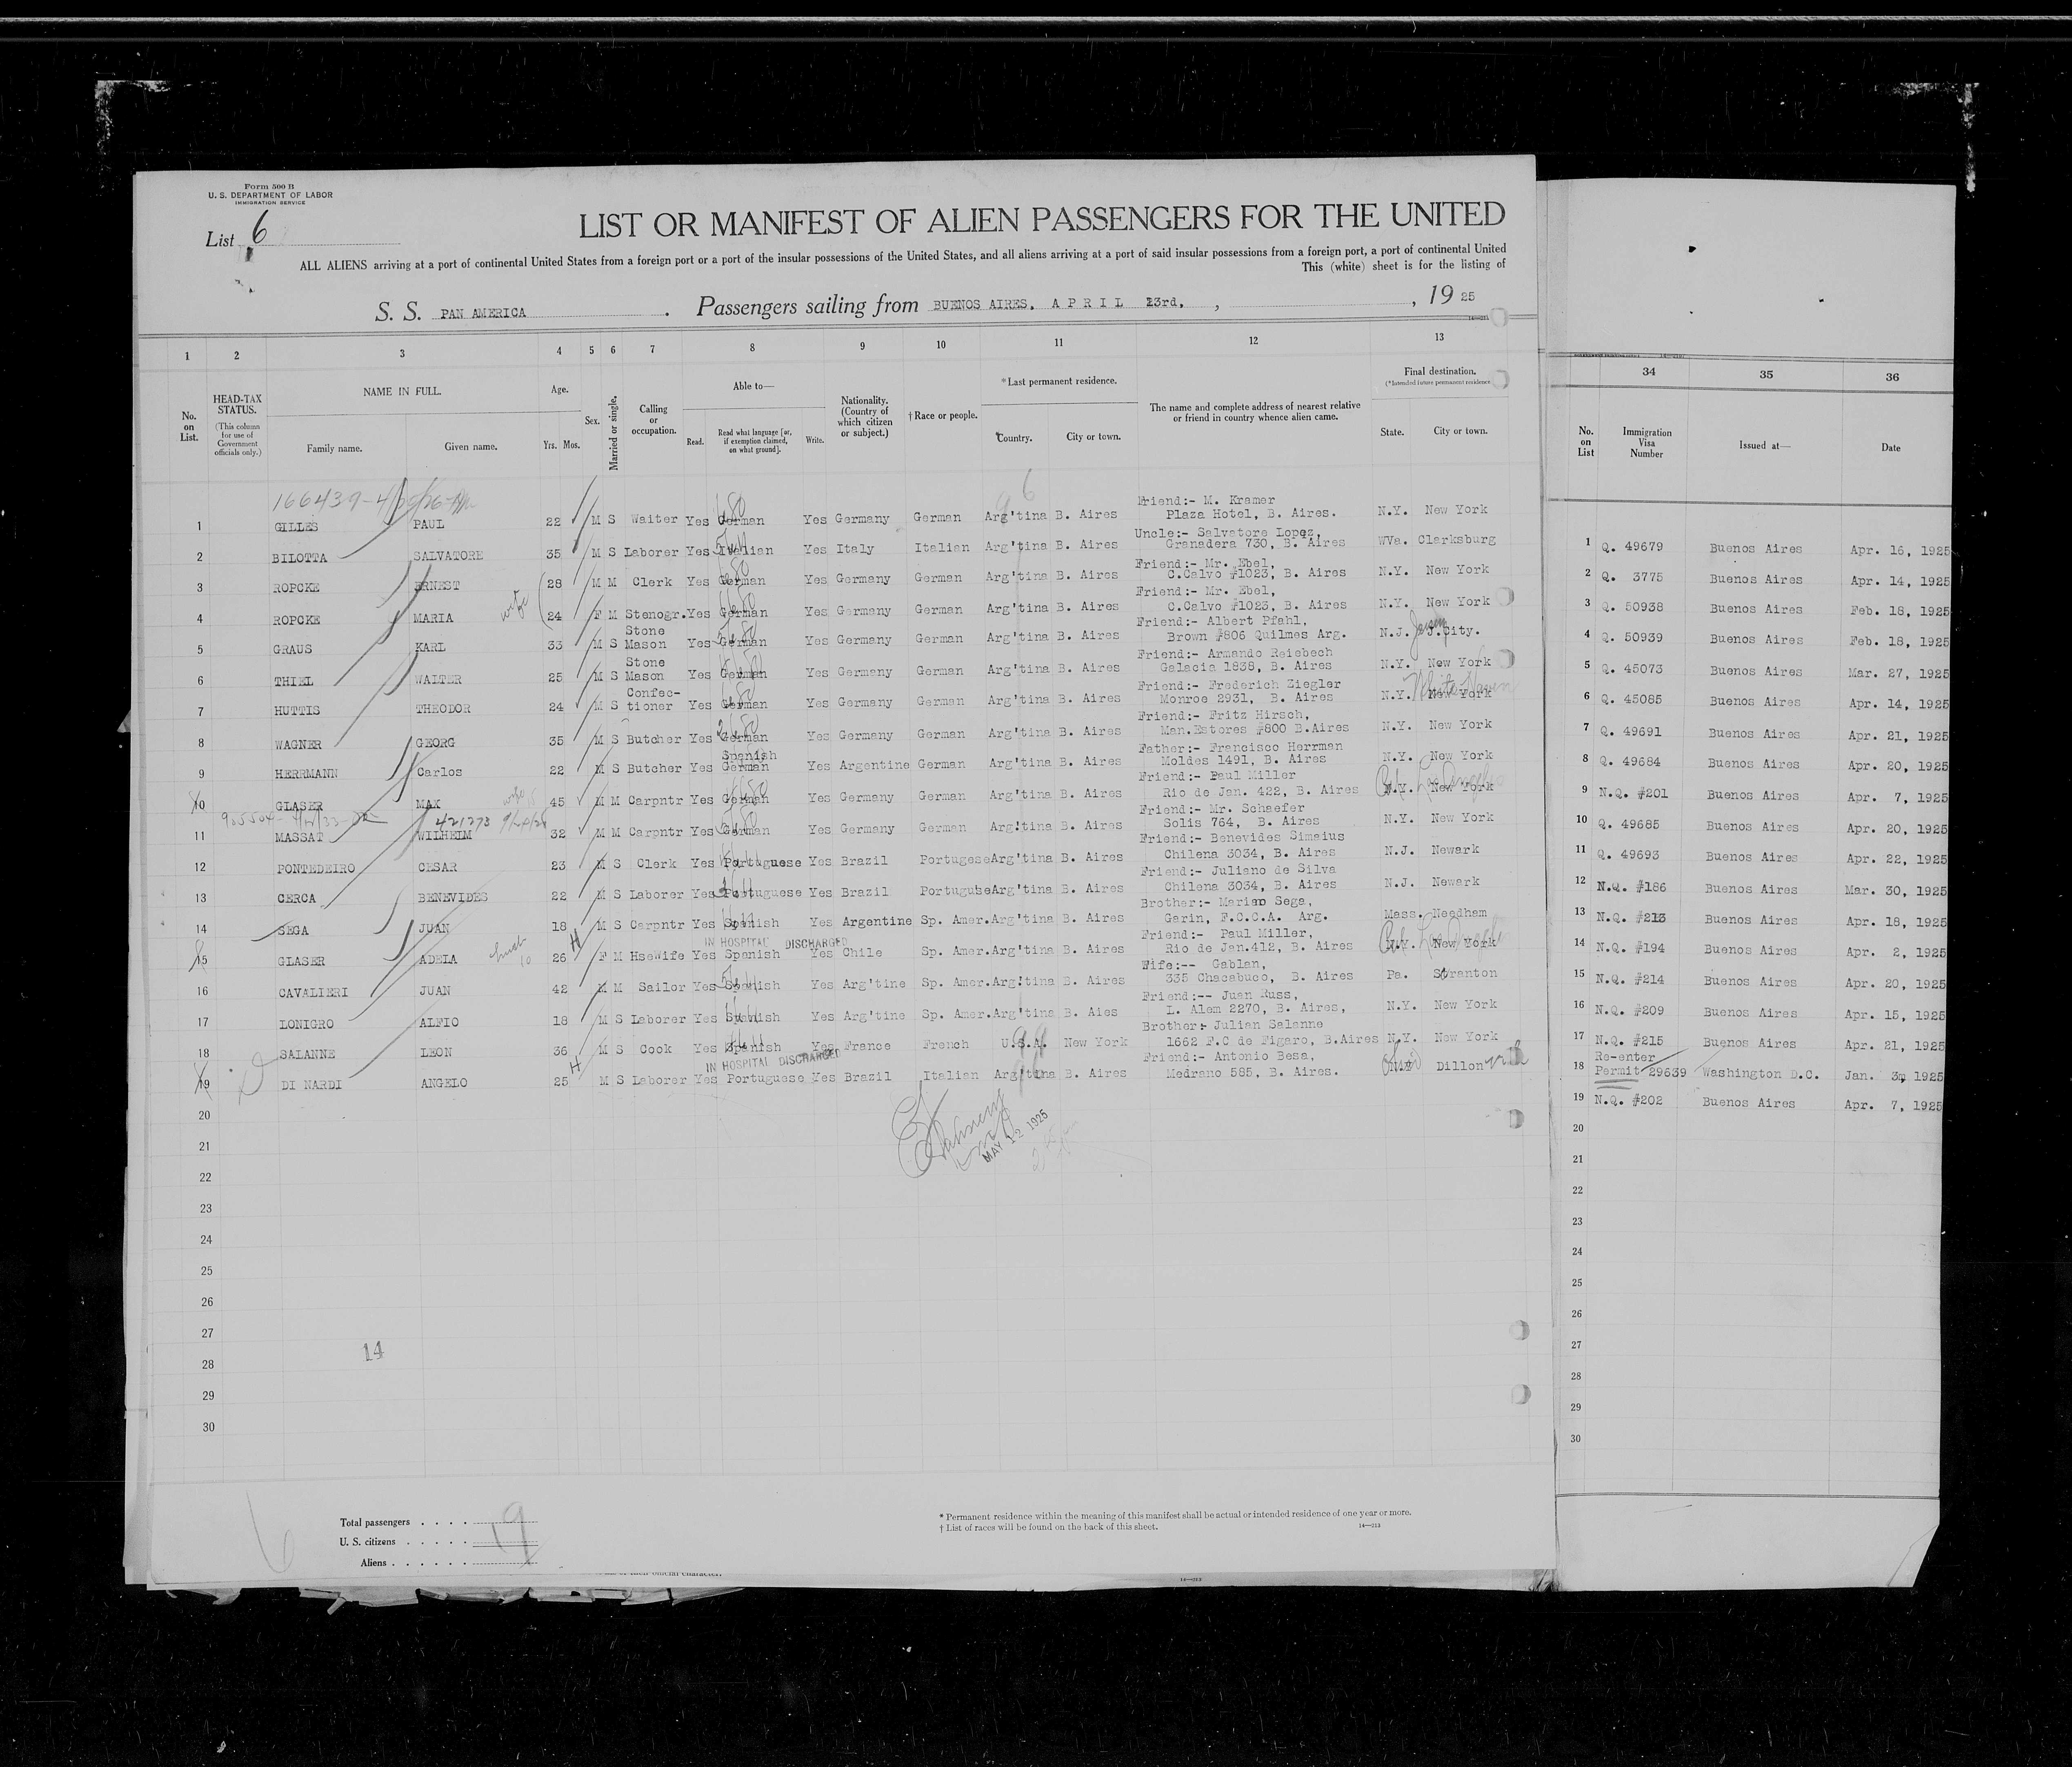 Form 500 B
U. S. DEPARTMENT OF LABOR
IMMIGRATION SERVICE
List 6
LIST OR MANIFEST OF ALIEN PASSENGERS FOR THE UNITED
ALL ALIENS arriving at a port of continental United States from a foreign port or a port of the insular possessions of the United States, and all aliens arriving at a port of said insular possessions from a foreign port, a port of continental United
This (white) sheet is for the listing of
S. S. PAN AMERICA . Passengers sailing from BUENOS AIRES, A P R I L 23rd, , , 19 25
1 2 3 4 5 6 7 8 9 10 11 12 13 34 35 36
No. on List.
HEAD-TAX STATUS.
(This column for use of Government officials only.)
NAME IN FULL.
Family name. Given name.
Age.
Yrs. Mos.
Sex.
Married or single.
Calling or occupation.
Able to—
Read. Read what language [or, if exemption claimed, on what ground]. Write.
Nationality. (Country of which citizen or subject.)
† Race or people.
*Last permanent residence.
Country. City or town.
The name and complete address of nearest relative or friend in country whence alien came.
Final destination.
(*Intended future permanent residence
State. City or town.
No. on List
Immigration Visa Number
Issued at—
Date
1 GILLES PAUL 22 M S Waiter Yes German Yes Germany German Arg'tina B. Aires Friend:- M. Kramer Plaza Hotel, B. Aires. N.Y. New York
2 BILOTTA SALVATORE 35 M S Laborer Yes Italian Yes Italy Italian Arg'tina B. Aires Uncle:- Salvatore Lopez, Granadera 730, B. Aires WVa. Clarksburg
3 ROPCKE ERNEST 28 M M Clerk Yes German Yes Germany German Arg'tina B. Aires Friend:- Mr. Ebel, C.Calvo #1023, B. Aires N.Y. New York
4 ROPCKE MARIA wife 24 F M Stenogr. Yes German Yes Germany German Arg'tina B. Aires Friend:- Mr. Ebel, C.Calvo #1023, B. Aires N.Y. New York
5 GRAUS KARL 33 M S Stone Mason Yes German Yes Germany German Arg'tina B. Aires Friend:- Albert Pfahl, Brown #806 Quilmes Arg. N.J. J.City.
6 THIEL WALTER 25 M S Stone Mason Yes German Yes Germany German Arg'tina B. Aires Friend:- Armando Reisbech Galacia 1838, B. Aires N.Y. New York
7 HUTTIS THEODOR 24 M S Confec-tioner Yes German Yes Germany German Arg'tina B. Aires Friend:- Frederich Ziegler Monroe 2931, B. Aires N.Y. New York
8 WAGNER GEORG 35 M S Butcher Yes German Yes Germany German Arg'tina B. Aires Friend:- Fritz Hirsch, Man.Estores #800 B.Aires N.Y. New York
9 HERRMANN Carlos 22 M S Butcher Yes Spanish German Yes Argentine German Arg'tina B. Aires Father:- Francisco Herrman Moldes 1491, B. Aires N.Y. New York
10 GLASER MAX wife 15 45 M M Carpntr Yes German Yes Germany German Arg'tina B. Aires Friend:- Paul Miller Rio de Jan. 422, B. Aires N.Y. New York
11 MASSAT WILHEIM 32 M M Carpntr Yes German Yes Germany German Arg'tina B. Aires Friend:- Mr. Schaefer Solis 764, B. Aires N.Y. New York
12 PONTEDEIRO CESAR 23 M S Clerk Yes Portuguese Yes Brazil Portugese Arg'tina B. Aires Friend:- Benevides Simsius Chilena 3034, B. Aires N.J. Newark
13 CERCA BENEVIDES 22 M S Laborer Yes Portuguese Yes Brazil Arg'tina B. Aires Friend:- Juliano de Silva Chilena 3034, B. Aires N.J. Newark
14 SEGA JUAN 18 M S Carpntr Yes Spanish Yes Argentine Sp. Amer. Arg'tina B. Aires Brother:- Sega, Garin, F.C.C.A. Arg. Mass. Needham
IN HOSPITAL DISCHARGED
15 GLASER ADELA husb 10 26 F M Hsewife Yes Spanish Yes Chile Sp. Amer. Arg'tina B. Aires Friend:- Paul Miller, Rio de Jan.412, B. Aires N.Y. New York
16 CAVALIERI JUAN 42 M M Sailor Yes Spanish Yes Arg'tine Sp. Amer. Arg'tina B. Aires Wife:-- Gablan, 335 Chacabuco, B. Aires Pa. Scranton
17 LONIGRO ALFIO 18 M S Laborer Yes Spanish Yes Arg'tine Sp. Amer. Arg'tina B. Aies Friend:-- Juan Russ, L. Alem 2270, B. Aires, N.Y. New York
18 SALANNE LEON 36 M S Cook Yes Spanish Yes France French U.S.A. New York Brother:- Julian Salanne 1662 F.C de Figaro, B.Aires N.Y. New York
IN HOSPITAL DISCHARGED
19 DI NARDI ANGELO 25 M S Laborer Yes Portuguese Yes Brazil Italian Arg'tina B. Aires Friend:- Antonio Besa, Medrano 585, B. Aires. Dillonvale
MAY 12 1925
20
21
22
23
24
25
26
27
28
29
30
14
1 Q. 49679 Buenos Aires Apr. 16, 1925
2 Q. 3775 Buenos Aires Apr. 14, 1925
3 Q. 50938 Buenos Aires Feb. 18, 1925
4 Q. 50939 Buenos Aires Feb. 18, 1925
5 Q. 45073 Buenos Aires Mar. 27, 1925
6 Q. 45085 Buenos Aires Apr. 14, 1925
7 Q. 49691 Buenos Aires Apr. 21, 1925
8 Q. 49684 Buenos Aires Apr. 20, 1925
9 N.Q. #201 Buenos Aires Apr. 7, 1925
10 Q. 49685 Buenos Aires Apr. 20, 1925
11 Q. 49693 Buenos Aires Apr. 22, 1925
12 N.Q. #186 Buenos Aires Mar. 30, 1925
13 N.Q. #213 Buenos Aires Apr. 18, 1925
14 N.Q. #194 Buenos Aires Apr. 2, 1925
15 N.Q. #214 Buenos Aires Apr. 20, 1925
16 N.Q. #209 Buenos Aires Apr. 15, 1925
17 N.Q. #215 Buenos Aires Apr. 21, 1925
18 Re-enter Permit 29639 Washington D.C. Jan. 3, 1925
19 N.Q. #202 Buenos Aires Apr. 7, 1925
20
21
22
23
24
25
26
27
28
29
30
6
Total passengers . . . . 19
U. S. citizens . . . . .
Aliens . . . . . .
* Permanent residence within the meaning of this manifest shall be actual or intended residence of one year or more.
† List of races will be found on the back of this sheet.
14—213